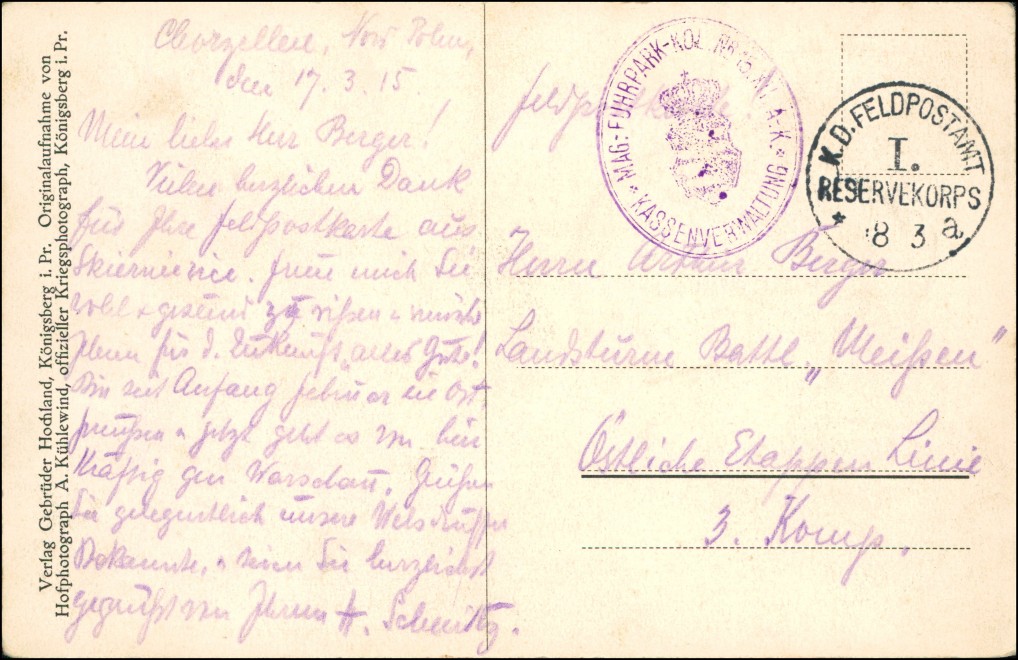 Verlag Gebrüder Hochland, Königsberg i. Pr. Originalaufnahme von
Hofphotograph A. Kühlewind, offizieller Kriegsphotograph, Königsberg i. Pr.
Chorzellen, Nord Polen,
den 17. 3. 15
Mein lieber Herr Berger!
Vielen herzlichen Dank
für Ihre Feldpostkarte aus
Skierniewice. Freue mich Sie
wohl & gesund zu wissen & wünsche
Ihnen für d. Zukunft alles Gute!
Bin seit Anfang Februar in Ost
preußen & jetzt geht es von hier
kräftig gen Warschau. Grüßen
Sie gelegentlich unsere
Bekannte, & seien Sie herzlichst
gegrüßt von Ihrem H.
Feldpostkarte!
MAG.-FUHRPARK-KOL. NR
KASSENVERWALTUNG
K.D. FELDPOSTAMT
I.
RESERVEKORPS
* 18 3 a
Herrn Arthur Berger
Landsturm Battl. „Meißen"
Östliche Etappen Linie
3. Komp.